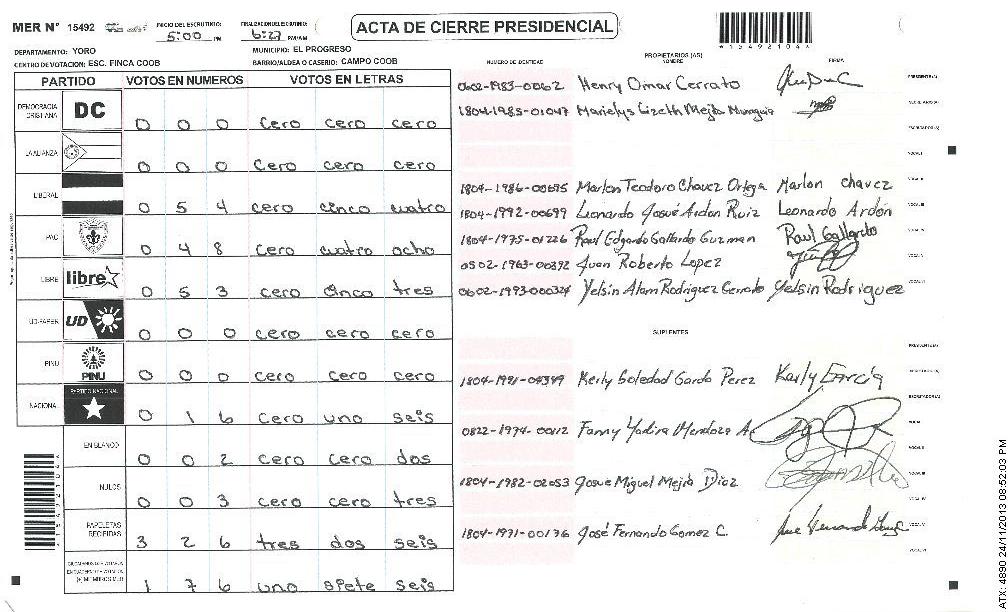 MER N° 15492
INICIO DEL ESCRUTINIO: 5:00 PM
FINALIZACION DEL ESCRUTINIO: 6:27 PM/AM
ACTA DE CIERRE PRESIDENCIAL
*15492104*
DEPARTAMENTO: YORO
MUNICIPIO: EL PROGRESO
CENTRO DE VOTACION: ESC. FINCA COOB
BARRIO/ALDEA O CASERIO: CAMPO COOB
PARTIDO VOTOS EN NUMEROS VOTOS EN LETRAS
DEMOCRACIA CRISTIANA DC 0 0 0 cero cero cero
LA ALIANZA 0 0 0 cero cero cero
LIBERAL 0 5 4 cero cinco cuatro
PAC 0 4 8 cero cuatro ocho
LIBRE libre 0 5 3 cero cinco tres
UD-FAPER UD 0 0 0 cero cero cero
PINU PINU 0 0 0 cero cero cero
NACIONAL PARTIDO NACIONAL 0 1 6 cero uno seis
EN BLANCO 0 0 2 cero cero dos
NULOS 0 0 3 cero cero tres
PAPELETAS RECIBIDAS 3 2 6 tres dos seis
(+) MIEMBROS MER 1 7 6 uno siete seis
NUMERO DE IDENTIDAD
PROPIETARIOS (AS)
NOMBRE
FIRMA
0602-1983-00062 Henry Omar Cerrato PRESIDENTE(A)
1804-1985-01047 Marielys Lizeth Mejia Munguia SECRETARIO(A)
ESCRUTADOR (A)
VOCAL I
1804-1986-00695 Marlon Teodoro Chavez Ortega Marlon chavez VOCAL II
1804-1992-00699 Leonardo Josué Ardon Ruiz Leonardo Ardón VOCAL III
1804-1975-01226 Raul Edgardo Gallardo Guzman Raul Gallardo VOCAL IV
0502-1963-00392 Juan Roberto Lopez VOCAL V
0602-1993-000324 Yelsin Alam Rodriguez Cerrato Yelsin Rodriguez VOCAL VI
SUPLENTES
PRESIDENTE (A)
1804-1991-04349 Kerly Soledad Garcia Perez Kerly García SECRETARIO(A)
ESCRUTADOR (A)
0822-1974-00112 Fanny Yadira Mendoza A. VOCAL I
VOCAL II
1804-1982-02053 Josue Miguel Mejia Diaz VOCAL III
VOCAL IV
1804-1971-00176 José Fernando Gomez C. VOCAL V
VOCAL VI
ATX: 4890 24/11/2013 08:52:03 PM